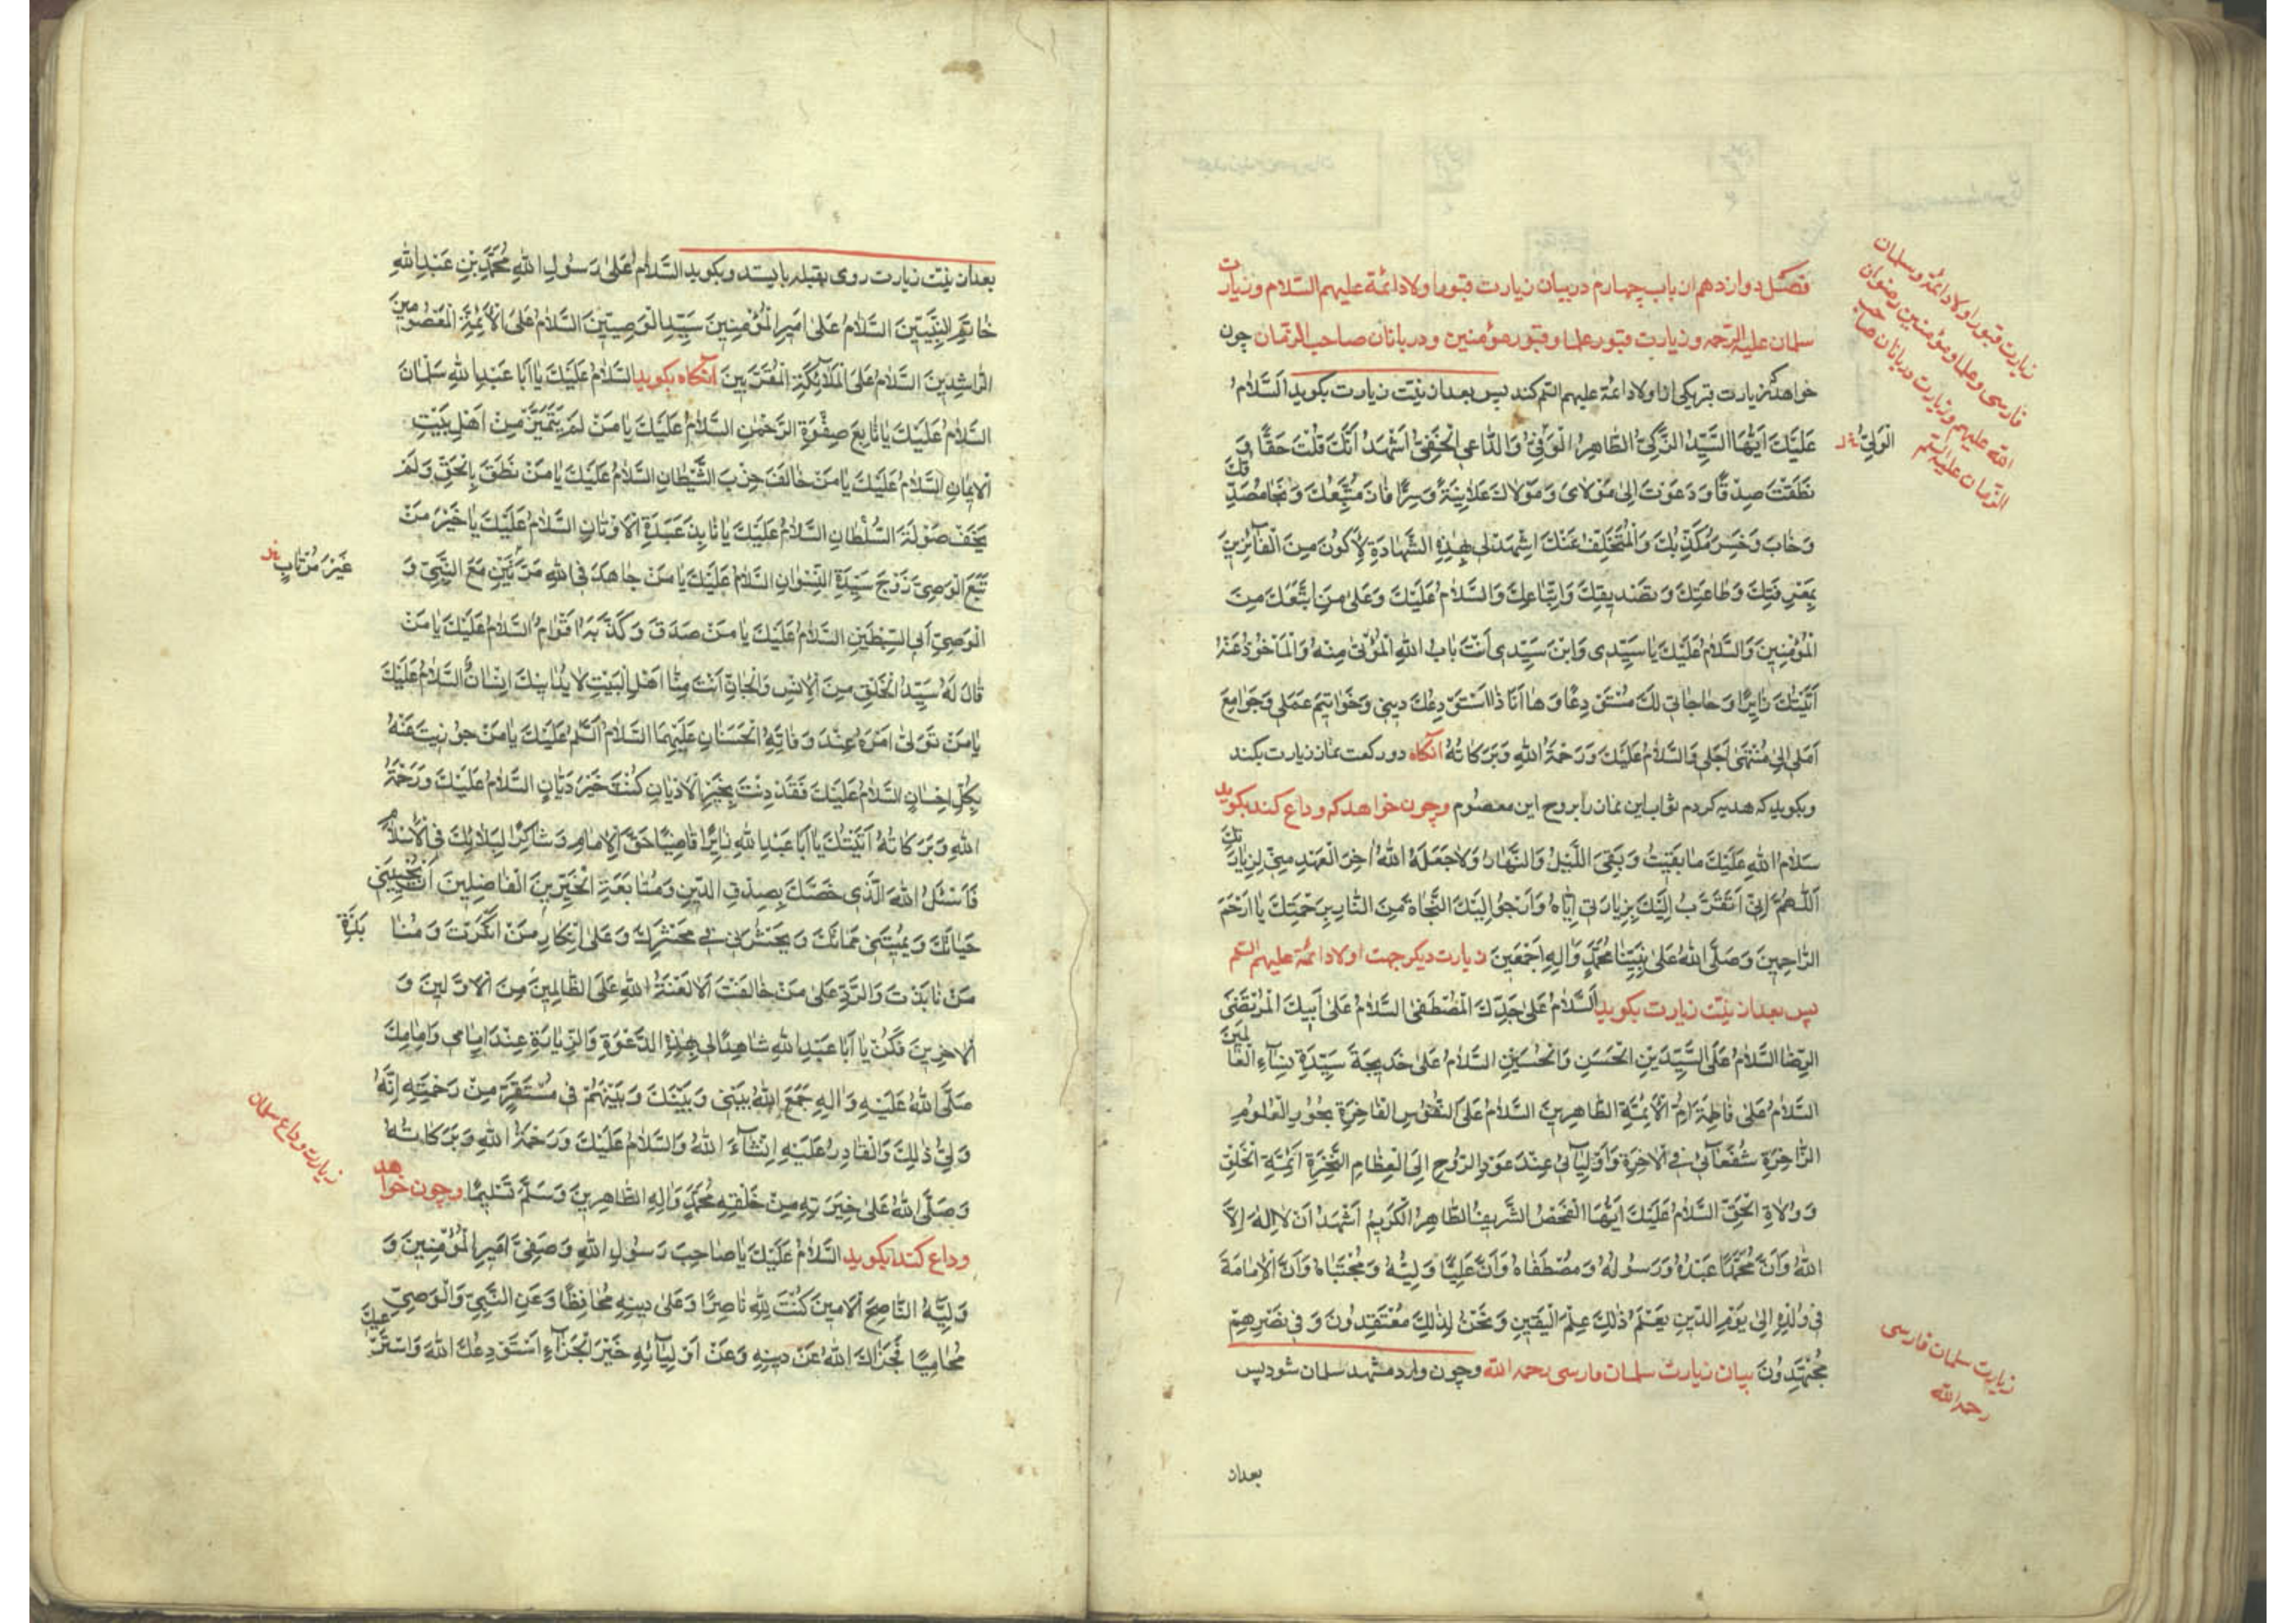 فصل دوازدهم از باب چهارم در بیان زیارت قبور اولاد ائمة علیهم السلام و زیارت
سلمان علیه الرحمه و زیارت قبور علما و قبور مؤمنین و دربانان صاحب الزمان چون
خواهد که زیارت قبر یکی از اولاد ائمة علیهم السلم کند پس بعد از نیت زیارت بکوید اَلسَّلامُ
عَلَيْكَ اَيُّهَا السَّيِّدُ الزَّكِيُّ الطَّاهِرُ الْوَفِيُّ وَالدَّاعِي الْحَفِيُّ اَشْهَدُ اَنَّكَ قُلْتَ حَقًّا وَ
نَطَقْتَ صِدْقًا وَ دَعَوْتَ اِلىٰ مَوْلايَ وَ مَوْلاكَ عَلانِيَةً وَ سِرًّا فازَ مُتَّبِعُكَ وَ نَجَا مُصَدِّقُكَ
وَ خابَ وَ خَسِرَ مُكَذِّبُكَ وَ الْمُتَخَلِّفُ عَنْكَ اِشْهَدْ لي بِهٰذِهِ الشَّهادَةِ لِاَكُونَ مِنَ الْفآئِزينَ
بِمَعْرِفَتِكَ وَ طاعَتِكَ وَ تَصْديقِكَ وَ اتِّباعِكَ وَ السَّلامُ عَلَيْكَ وَ عَلىٰ مَنِ اتَّبَعَكَ مِنَ
الْمُؤْمِنينَ وَ السَّلامُ عَلَيْكَ يا سَيِّدي وَ ابْنَ سَيِّدي اَنْتَ بابُ اللهِ الْمُؤْتىٰ مِنْهُ وَ الْمَأْخُوذُ عَنْهُ
اَتَيْتُكَ زائِرًا وَ حاجاتي لَكَ مُسْتَوْدِعًا وَ ها اَنَا ذا اَسْتَوْدِعُكَ ديني وَ خَواتيمَ عَمَلي وَ جَوامِعَ
اَمَلي اِلىٰ مُنْتَهىٰ اَجَلي وَ السَّلامُ عَلَيْكَ وَ رَحْمَةُ اللهِ وَ بَرَكاتُهُ آنکاه دو رکعت نماز زیارت بکند
و بکوید که هدیه کردم ثواب این نماز را بروح این معصوم و چون خواهد که وداع کند بکوید
سَلامُ اللهِ عَلَيْكَ ما بَقيتُ وَ بَقِيَ اللَّيْلُ وَ النَّهارُ وَ لا جَعَلَهُ اللهُ اٰخِرَ الْعَهْدِ مِنّي لِزِيارَتِكَ
اَللّٰهُمَّ اِنّي اَتَقَرَّبُ اِلَيْكَ بِزِيارَتي اِيّاهُ وَ اَرْجُو اِلَيْكَ النَّجاةَ مِنَ النّارِ بِرَحْمَتِكَ يا اَرْحَمَ
الرّاحِمينَ وَ صَلَّى اللهُ عَلىٰ نَبِيِّنا مُحَمَّدٍ وَ اٰلِهِ اَجْمَعينَ زیارت دیکر جهت اولاد ائمة علیهم السلم
پس بعد از نیت زیارت بکوید اَلسَّلامُ عَلىٰ جَدِّكَ الْمُصْطَفىٰ السَّلامُ عَلىٰ اَبيكَ الْمُرْتَضَى
الرِّضا السَّلامُ عَلَى السَّيِّدَيْنِ الْحَسَنِ وَ الْحُسَيْنِ السَّلامُ عَلىٰ خَديجَةَ سَيِّدَةِ نِسآءِ الْعالَمينَ
السَّلامُ عَلىٰ فاطِمَةَ اُمِّ الْاَئِمَّةِ الطّاهِرينَ السَّلامُ عَلَى النُّفُوسِ الْفاخِرَةِ بُحُورِ الْعُلُومِ
الزّاخِرَةِ شُفَعآئي فِي الْاٰخِرَةِ وَ اَوْلِيآئي عِنْدَ عَوْدِ الرُّوحِ اِلَى الْعِظامِ النَّخِرَةِ اَئِمَّةِ الْخَلْقِ
وَ وُلاةِ الْحَقِّ السَّلامُ عَلَيْكَ اَيُّهَا الشَّخْصُ الشَّريفُ الطّاهِرُ الْكَريمُ اَشْهَدُ اَنْ لا اِلٰهَ اِلَّا
اللهُ وَ اَنَّ مُحَمَّدًا عَبْدُهُ وَ رَسُولُهُ وَ مُصْطَفاهُ وَ اَنَّ عَلِيًّا وَلِيُّهُ وَ مُجْتَباهُ وَ اَنَّ الْاِمامَةَ
في وُلْدِهِ اِلىٰ يَوْمِ الدّينِ نَعْلَمُ ذٰلِكَ عِلْمَ الْيَقينِ وَ نَحْنُ لِذٰلِكَ مُعْتَقِدُونَ وَ في نَصْرِهِمْ
مُجْتَهِدُونَ بیان زیارت سلمان فارسی رحمه الله و چون وارد مشهد سلمان شود پس
بعداز
زیارت قبور اولاد ائمة و سلمان
فارسی و علما و مؤمنین رضوان
الله علیهم و زیارت دربانان صاحب
الزمان علیه السلم
الْوَلِيُّ
زیارت سلمان فارسی
رحمه الله
بعداز نیت زیارت روی بقبله بایستد و بکوید السَّلامُ عَلىٰ رَسُولِ اللهِ مُحَمَّدِ بْنِ عَبْدِ اللهِ
خاتَمِ النَّبِيّينَ السَّلامُ عَلىٰ اَميرِ الْمُؤْمِنينَ سَيِّدِ الْوَصِيّينَ السَّلامُ عَلَى الْاَئِمَّةِ الْمَعْصُومينَ
الرّاشِدينَ السَّلامُ عَلَى الْمَلآئِكَةِ الْمُقَرَّبينَ آنکاه بکوید السَّلامُ عَلَيْكَ يا اَبا عَبْدِ اللهِ سَلْمانَ
السَّلامُ عَلَيْكَ يا تابِعَ صِفْوَةِ الرَّحْمٰنِ السَّلامُ عَلَيْكَ يا مَنْ لَمْ يَتَمَيَّزْ مِنْ اَهْلِ بَيْتِ
الْايمانِ السَّلامُ عَلَيْكَ يا مَنْ خالَفَ حِزْبَ الشَّيْطانِ السَّلامُ عَلَيْكَ يا مَنْ نَطَقَ بِالْحَقِّ وَ لَمْ
يَخَفْ صَوْلَةَ السُّلْطانِ السَّلامُ عَلَيْكَ يا نابِذَ عَبَدَةِ الْاَوْثانِ السَّلامُ عَلَيْكَ يا خَيْرَ مَنْ
تَبِعَ الْوَصِيَّ زَوْجَ سَيِّدَةِ النِّسْوانِ السَّلامُ عَلَيْكَ يا مَنْ جاهَدَ فِي اللهِ مَرَّتَيْنِ مَعَ النَّبِيِّ وَ
الْوَصِيِّ اَبِي السِّبْطَيْنِ السَّلامُ عَلَيْكَ يا مَنْ صَدَقَ وَ كَذَّبَهُ اَقْوامٌ السَّلامُ عَلَيْكَ يا مَنْ
قالَ لَهُ سَيِّدُ الْخَلْقِ مِنَ الْاِنْسِ وَ الْجانِّ اَنْتَ مِنّا اَهْلَ الْبَيْتِ لا يُدانيكَ اِنْسانٌ السَّلامُ عَلَيْكَ
يا مَنْ تَوَلّىٰ اَمْرَهُ عِنْدَ وَفاتِهِ اَبُو الْحَسَنَيْنِ السَّلامُ عَلَيْكَ يا مَنْ جُوزِيتَ عَنْهُ
بِكُلِّ اِحْسانٍ السَّلامُ عَلَيْكَ فَقَدْ دِنْتَ بِخَيْرِ الْاَدْيانِ كُنْتَ خَيْرَ دَيّانٍ السَّلامُ عَلَيْكَ وَ رَحْمَةُ
اللهِ وَ بَرَكاتُهُ اَتَيْتُكَ يا اَبا عَبْدِ اللهِ زائِرًا قاضِيًا حَقَّ الْاِمامِ وَ شاكِرًا لِبَلائِكَ فِي الْاِسْلامِ
فَاَسْئَلُ اللهَ الَّذي خَصَّكَ بِصِدْقِ الدّينِ وَ مُتابَعَةِ الْخَيِّرينَ الْفاضِلينَ اَنْ يُحْيِيَني
حَياتَكَ وَ يُميتَني مَماتَكَ وَ يَحْشُرَني في مَحْشَرِكَ وَ عَلىٰ اِنْكارِ مَنْ اَنْكَرْتَ وَ مُنا بَذَةِ
مَنْ نابَذْتَ وَ الرَّدِّ عَلىٰ مَنْ خالَفْتَ اَلا لَعْنَةُ اللهِ عَلَى الظّالِمينَ مِنَ الْاَوَّلينَ وَ
الْاٰخِرينَ فَكُنْ يا اَبا عَبْدِ اللهِ شاهِدًا لي بِهٰذِهِ الدَّعْوَةِ وَ الزِّيارَةِ عِنْدَ اِمامي وَ اِمامِكَ
صَلَّى اللهُ عَلَيْهِ وَ اٰلِهِ جَمَعَ اللهُ بَيْني وَ بَيْنَكَ وَ بَيْنَهُمْ في مُسْتَقَرٍّ مِنْ رَحْمَتِهِ اِنَّهُ
وَلِيُّ ذٰلِكَ وَ الْقادِرُ عَلَيْهِ اِنْشآءَ اللهُ وَ السَّلامُ عَلَيْكَ وَ رَحْمَةُ اللهِ وَ بَرَكاتُهُ
وَ صَلَّى اللهُ عَلىٰ خِيَرَتِهِ مِنْ خَلْقِهِ مُحَمَّدٍ وَ اٰلِهِ الطّاهِرينَ وَ سَلَّمَ تَسْليمًا و چون خواهد
وداع کند بکوید السَّلامُ عَلَيْكَ يا صاحِبَ رَسُولِ اللهِ وَ صَفِيَّ اَميرِ الْمُؤْمِنينَ وَ
وَلِيَّهُ النّاصِحَ الْاَمينَ كُنْتَ لِلّٰهِ ناصِرًا وَ عَلىٰ دينِهِ مُحافِظًا وَ عَنِ النَّبِيِّ وَ الْوَصِيِّ
مُحامِيًا فَجَزاكَ اللهُ عَنْ دينِهِ وَ عَنْ اَوْلِيآئِهِ خَيْرَ الْجَزآءِ اَسْتَوْدِعُكَ اللهَ وَ اَسْتَرْعيكَ
غَيْرَ مُرْتابٍ
زیارت وداع سلمان